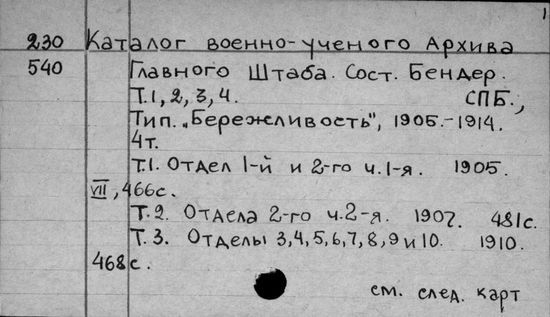 1
230 Каталог военно-ученого Архива
540 Главного Штаба. Сост. Бендер.
Т.1, 2, 3, 4. СПБ.,
Тип. „Бережливость", 1905.-1914.
4т.
Т.1. Отдел 1-й и 2-го ч.1-я. 1905.
VII, 466с.
Т.2. Отдела 2-го ч.2-я. 1907. 481с.
Т.3. Отделы 3,4,5,6,7,8,9 и 10. 1910.
468с.
см. след. карт